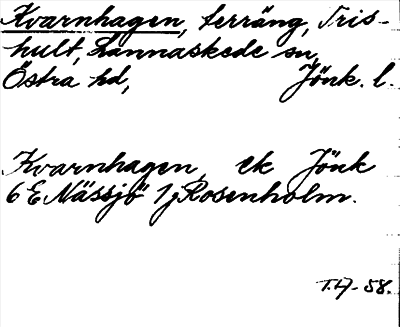 Kvarnhagen, terräng, Fris-
hult, Lannaskede sn,
Östra hd, Jönk. l.
Kvarnhagen, ek Jönk
6E Nässjö 1j Rosenholm.
58.